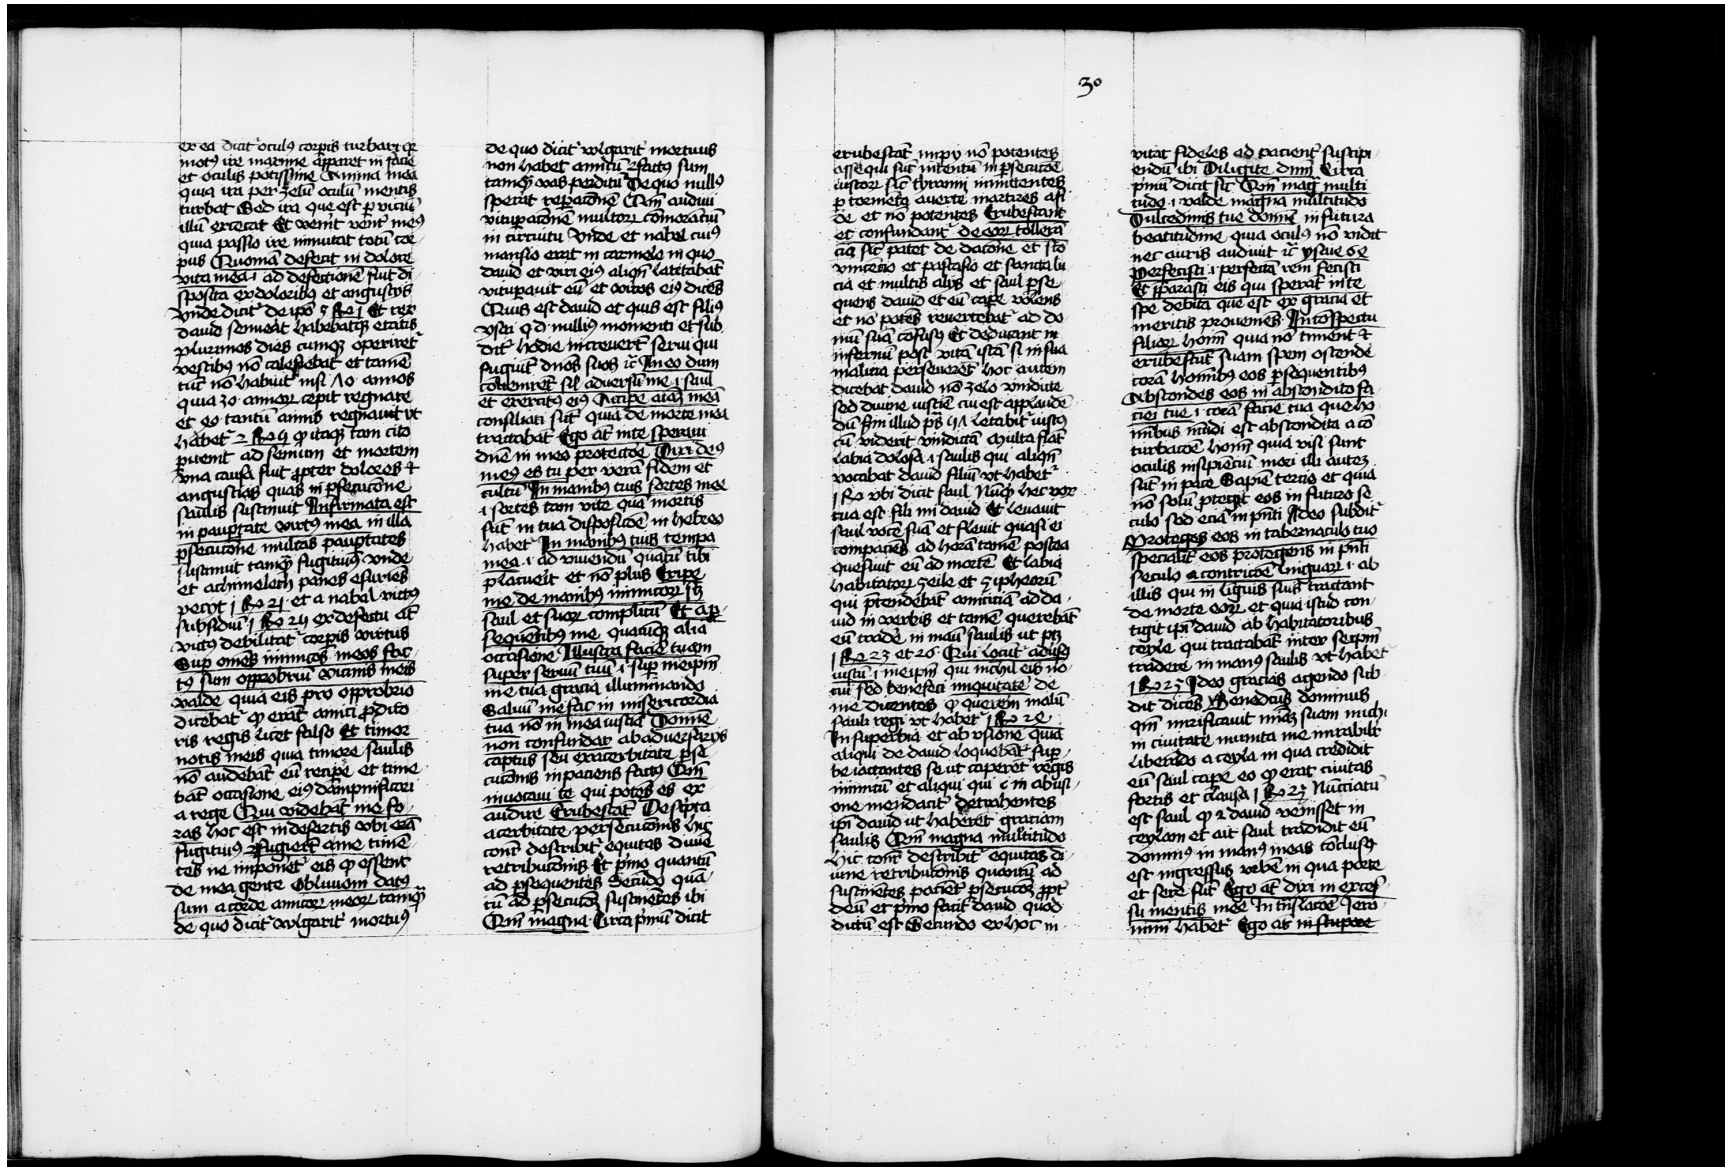 30
ex ea dicit᷑ oculꝰ corpis turbarꝫ qꝛ
motꝰ ire maxime apparet in facie
et oculis potissime Anima mea
quia ira per zelū oculū mentis
turbat Sed ira que est ꝑ viciū
illū excecat Et venit᷑ vent᷑ meꝰ
quia passio ire inmutat totū cor-
pus Quoniā defecit in dolore
vita mea .i. ad defectionē fuit di-
sposita ex doloribꝰ et angustijs
vnde dicit᷑ de ipō 3 Rꝫ 1 Et rex
dauid senuerat habebatqꝫ etatis
plurimos dies cumqꝫ operiret᷑
vestibꝰ nō calefiebat et tamē
tūc nō habuit nisi 70 annos
quia 30 annoꝝ cepit regnare
et 40 tantū annis regnauit vt
habet᷑ 2 Rꝫ 4 ꝙ itaqꝫ tam cito
ꝑuenit ad senium et mortem
vna causa fuit ꝓpter dolores et
angustias quas in ꝑsecucione
saulis sustinuit Infirmata est
in pauꝑtate virtꝰ mea in illa
ꝑsecucōne multas pauꝑtates
sustinuit tamqꝫ fugitiuꝰ vnde
et achimelech panes esuriēs
peciȷt 1 Rꝫ 21 et a nabal victꝰ
subsidiū 1 Rꝫ 24 ex defectu aūt
victꝰ debilitat᷑ corpis virtus
Sup omēs inimicos meos fac-
tꝰ sum opprobriū vicinis meis
valde quia eis pro opprobrio
dicebat᷑ ꝙ erāt amici ꝓdito
ris regis licet falso Et timor
notis meis quia timore saulis
nō audebāt eū recipe et time
bāt occasione eiꝰ dampnificari
a rege Qui videbāt me fo-
ras hoc est in desertis vbi erā
fugitiuꝰ ꝛfugierūt a me timē
tes ne imponet᷑ eis ꝙ essent
de mea gente Obliuioni datꝰ
sum a corde amicoꝝ meoꝝ tamqꝫ
de quo dicit᷑ wlgarit᷑ mortuꝰ
de quo dicit᷑ wlgarit᷑ mortuus
non habet amicū ꝛ factꝰ sum
tamqꝫ vas perditū De quo nullꝰ
sperat reꝑacōnē Qm̄ audiui
vituꝑacōnē multoꝝ cōmorāciū
in circuitu Vnde et nabel cuiꝰ
mansio erat in carmelo in quo
dauid et viri eiꝰ aliqn̄ latitabāt
vituꝑauit eū et viros eiꝰ dicēs
Quis est dauid et quis est filiꝰ
ysai q d nulliꝰ momenti et sub
dit᷑ hodie increuerūt serui qui
fugiūt dn̄os suos ꝛc̄ In eo dum
cōuenirēt sīl aduersū me .i. saul
et exercitꝰ eiꝰ Accipe aīaꝫ meā
consiliati sūt quia de morte mea
tractabāt Ego aūt in te speraui
dn̄e in meo protectōe Dixi deꝰ
meꝰ es tu per verā fidem et
cultū In manibꝰ tuis sortes mee
.i. sortes tam vite quā mortis
sūt in tua dispositōe in hebreo
habet᷑ In manibꝰ tuis tempa
mea .i. ad viuendū quātū tibi
placuerit et nō plus Eripe
me de manibꝰ inimicoꝝ
saul et suoꝝ complicū Et a ꝑ-
sequētibꝰ me quacūqꝫ alia
occasione Illustra faciē tuam
super seruū tuū .i. suꝑ meipm̄
me tua gracia illuminando
Saluū me fac in misericordia
tua nō in mea iusticia Domine
non confundar ab aduersarijs
captus seu exacerbitate ꝑse-
cucōnis inpaciens factꝰ Qm̄
inuocaui te qui potēs es ex
audire Erubescāt Descripta
acerbitate persecucōnis hic
cōnt᷑ describit᷑ equitas diuīe
retribucōnis Et pͥmo quantū
ad ꝑsequentes Secūdo quā-
tū ad ꝑsecucōꝫ sustinētes ibi
Qm̄ magna Circa pͥmū dicit
erubescāt impij nō potentes
assequi suū intentū in ꝑsecucōe
iustoꝝ sic̄ thiranni inmittentes
ꝑ tormēta auerte martires a fi
de et nō potentes Erubescant
et confundant᷑ de eoꝝ tollerā
cia sic̄ patet de dacōne et scō
vincēcio et pastasio et sancta lu
cia et multis alijs et saul ꝑse
quens dauid et eū capē volens
et nō potēs reuertebat᷑ ad do
mū suā cōfusꝰ Et deducant᷑ in
infernū post vitā istā si in sua
malicia perseuerēt hoc autem
dicebat dauid nō zelo vindicte
sed diuine iusticie cui est applaudē
dū scdm illud ps̄ 57 letabit᷑ iustꝰ
cū viderit vindictā Muta fiāt
labia dolosa .i. saulis qui aliqn̄
vocabat dauid filiū vt habet᷑
1 Rꝫ vbi dicit saul Nūqd̄ hec vox
tua est fili mi dauid Et leuauit
saul vocē suā et fleuit quasi ei
compaciēs ad horā tamē postea
quesiuit eū ad mortē Et labia
habitatoꝝ zeile et zipheorū
qui p̄tendebāt amiciciā ad da-
uid in verbis et tamē querebāt
eū tradē in manꝰ saulis ut ptꝫ
1 Rꝫ 23 et 26 Qui locut᷑ adūsꝰ
iustū .i. meipm̄ qui nichil eis no-
cui sed benefeci iniquitatē de
me dicentes ꝙ querem malū
sauli regi vt habet᷑ 1 Rꝫ 24
In superbia et abusione quia
aliqui de dauid loquebāt᷑ suꝑ-
be iactantes se ut caperēt regis
inimicū et aliqui qui ꝛ in abusi-
one mendacit᷑ detrahentes
ipī dauid ut haberēt graciam
saulis Qm̄ magna multitudo
hic cōnt᷑ describit᷑ equitas di-
uine retribucōnis quantū ad
sustinētes paciēt᷑ ꝑsecucōꝫ ꝓpt᷑
deū et pͥmo facit dauid quod
dictū est Secundo ex hoc in-
uitat fideles ad pacient᷑ suscipi
endū ibi Diligite dn̄m Circa
pͥmū dicit sic̄ Qm̄ mag᷑ multi
tudo .i. valde magna multitudo
Dulcedinis tue domine in futura
beatitudine quia oculꝰ nō vidit
nec auris audiuit ꝛc̄ ysaie 64
Perfecisti .i. perfectā rem fecisti
Et p̄parasti eis qui sperāt in te
spe debita que est ex gracia et
meritis proueniēs In cōspectu
filioꝝ homī quia nō timent et
erubescūt suam spem ostendē
corā hominibꝰ eos ꝑsequentibꝰ
Abscondes eos in abscondito fa
ciei tue .i. corā facie tua que ho
minibus mūdi est abscondita a cō
turbacōe homī quia visi sunt
oculis insipiēciū mori illi autem
sūt in pace Sapiē tercio et quia
nō solū ꝓtegit eos in futuro se
culo sed eciā in pn̄ti Ideo subdit᷑
Proteges eos in tabernaculo tuo
specialit᷑ eos protegens in pn̄ti
seculo a contradictōe linguaꝝ .i. ab
illis qui in ligwis suis tractant
de morte eoꝝ et quia istud con-
tigit ipī dauid ab habitatoribus
ceyle qui tractabāt inter seipm̄
tradere in manꝰ saulis vt habet᷑
1 Rꝫ 23 Ideo gracias agendo sub-
dit dicēs Benedictꝰ dominus
qm̄ mirificauit mīaꝫ suam michi
in ciuitate munita me mirabilit᷑
liberādo a ceyla in qua credidit
eū saul capē eo ꝙ erat ciuitas
fortis et clausa 1 Rꝫ 23 Nūcciatū
est saul ꝙ dauid venisset in
ceylam et ait saul tradidit eū
dominꝰ in manꝰ meas cōclusꝰ
est ingressus vrbē in qua porte
et sere sūt Ego aūt dixi in exces-
su mentis mee In trn̄slacōe Jero
nimi habet᷑ Ego aūt in stupore